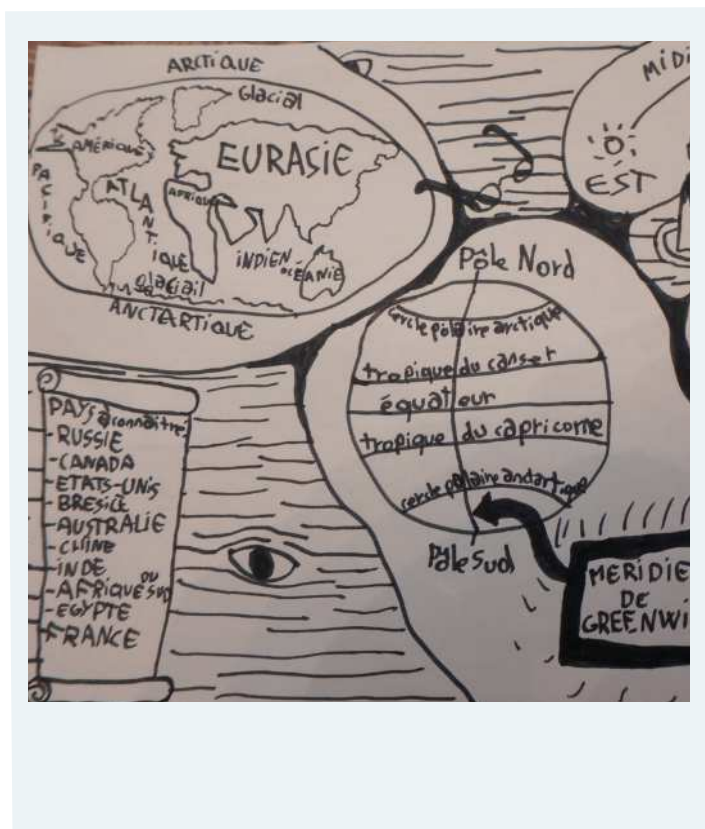 ARCTIQUE
Glacial
AMÉRIQUE
EURASIE
PACIFIQUE
ATLANTIQUE
AFRIQUE
INDIEN
OCÉANIE
Glacial
ANCTARTIQUE
MIDI
EST
Pôle Nord
cercle pôlaire arctique
tropique du canser
équateur
tropique du capricorne
cercle pôlaire anctartique
Pôle Sud
MERIDIE
DE
GREENWI
PAYS à connaître:
-RUSSIE
-CANADA
-ETATS-UNIS
-BRESIL
-AUSTRALIE
-CHINE
-INDE
-AFRIQUE DU SUD
-EGYPTE
-FRANCE